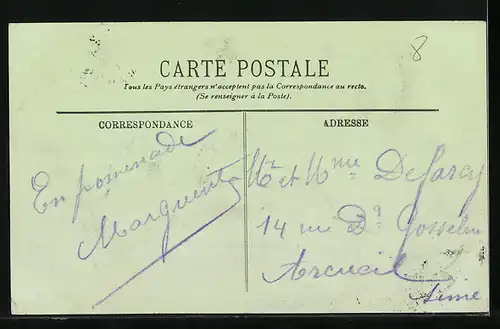 8
CARTE POSTALE
Tous les Pays étrangers n'acceptent pas la Correspondance au recto.
(Se renseigner à la Poste).
CORRESPONDANCE
ADRESSE
En promenade
Marguerite
Mr et Mme Defarcy
14 rue Dr Gosselin
Arcueil
Seine